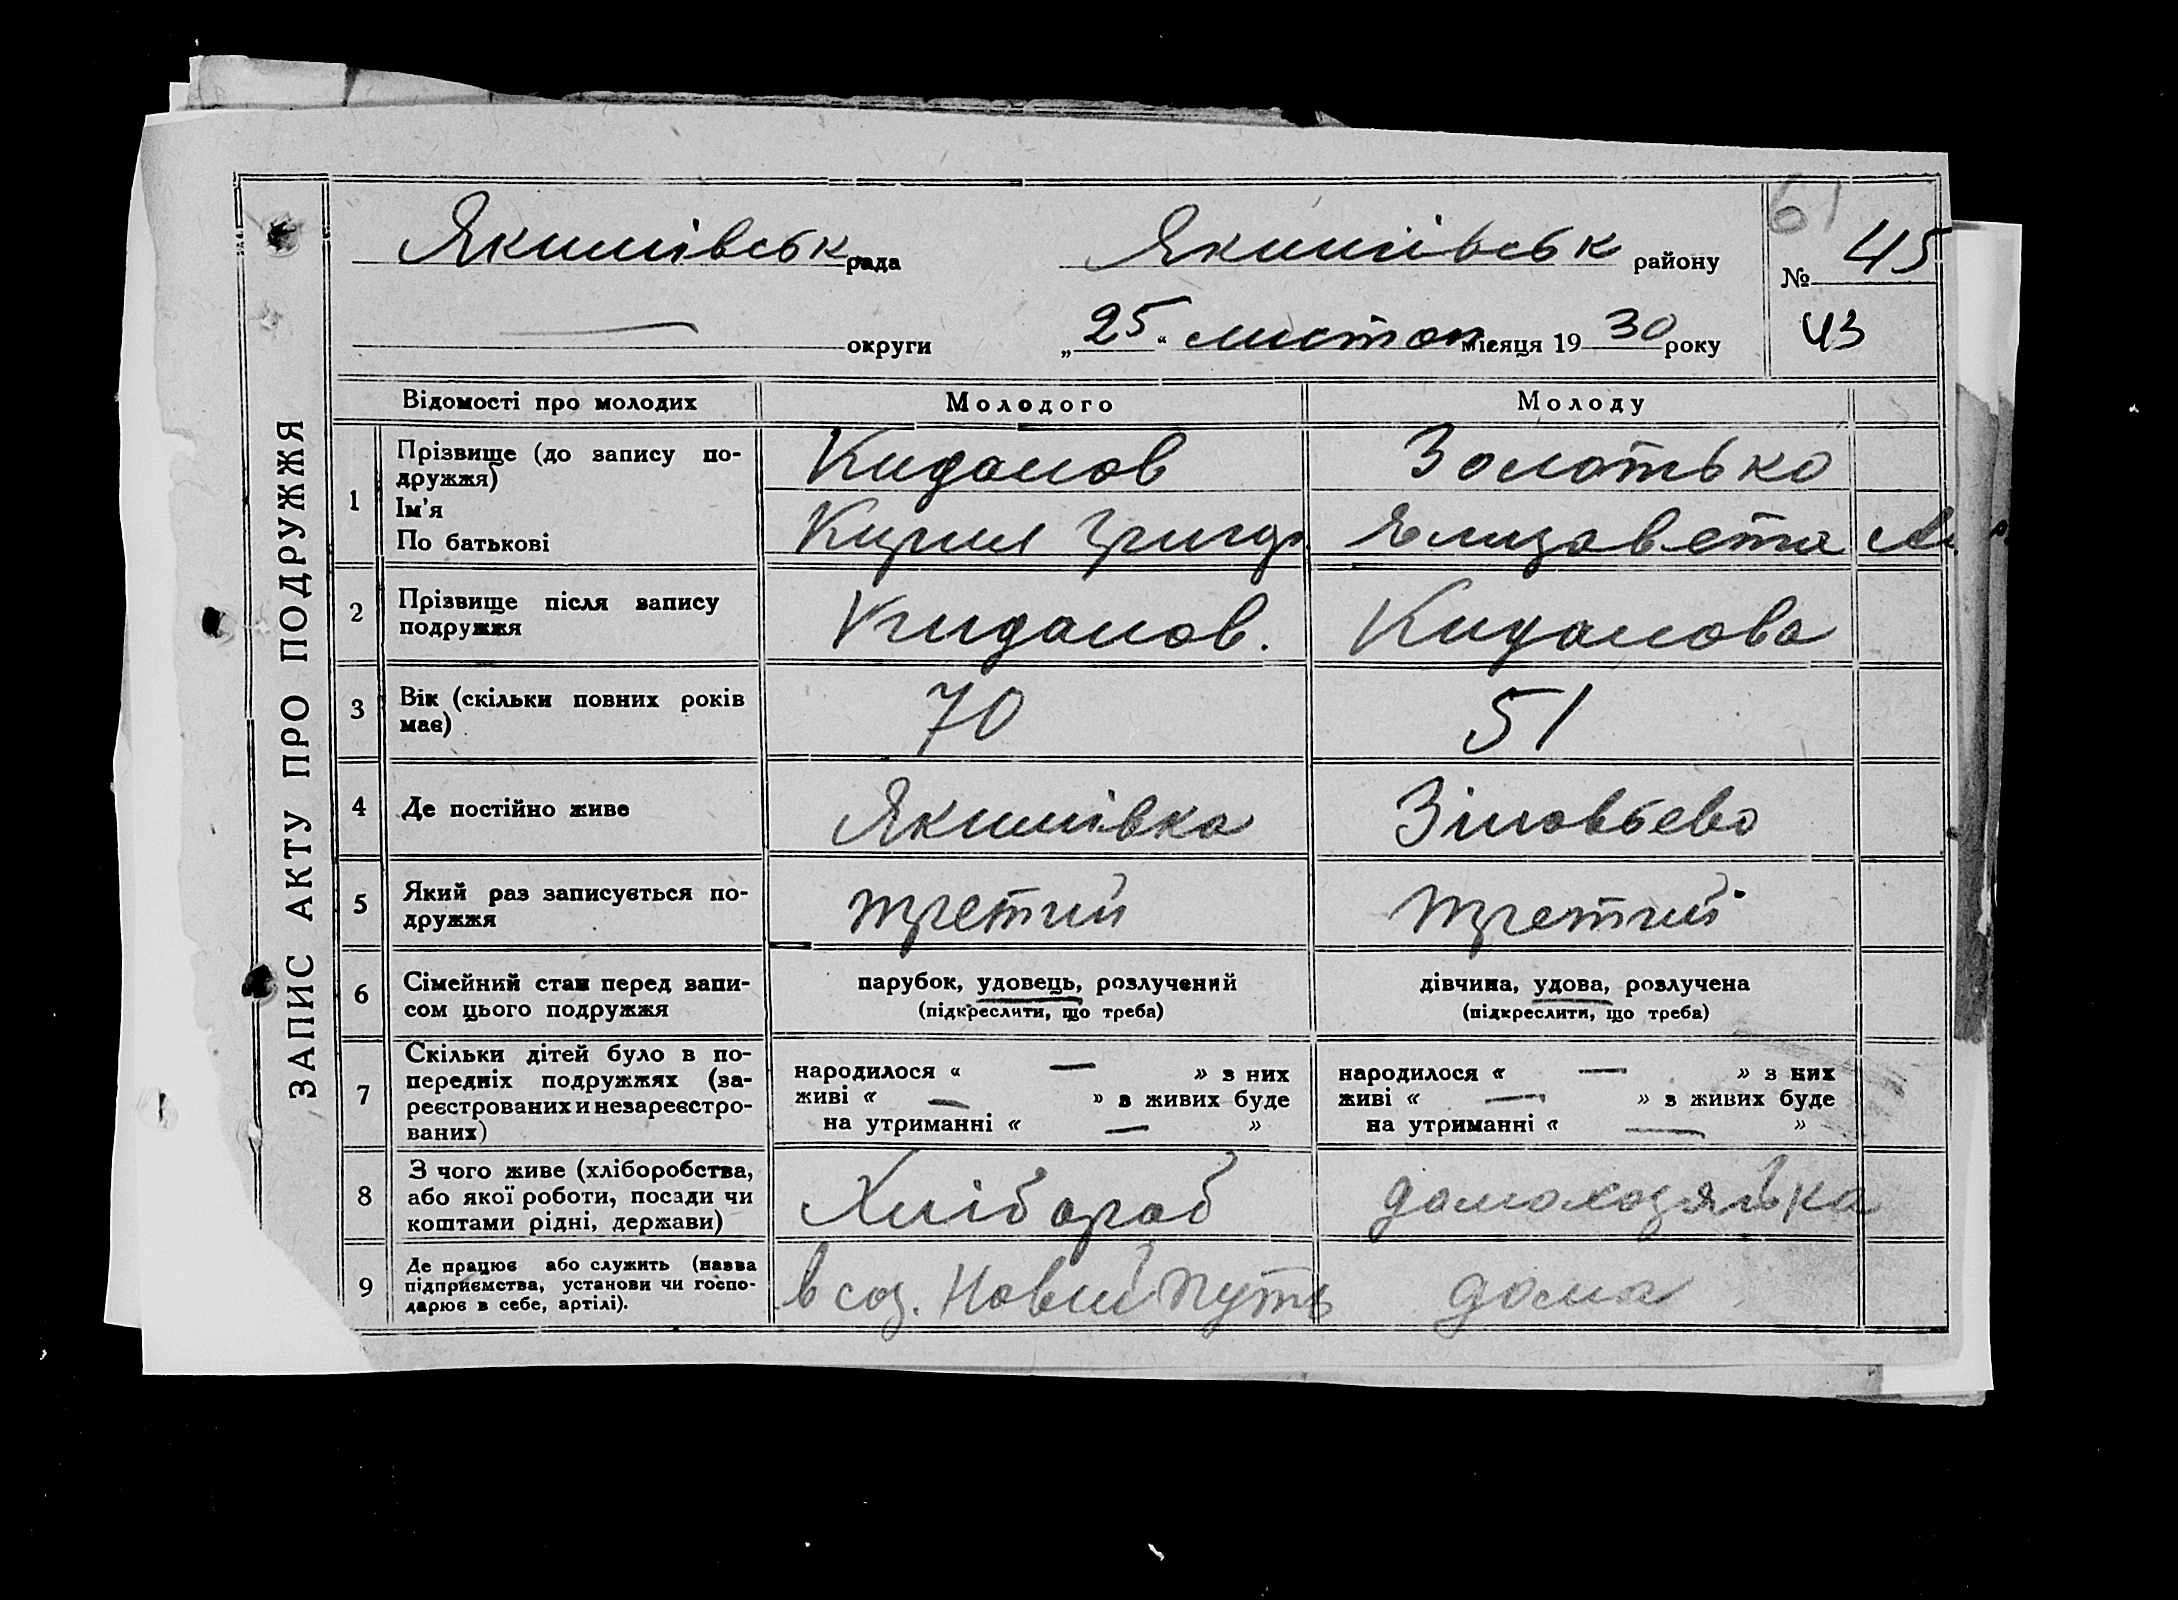 ЗАПИС АКТУ ПРО ПОДРУЖЖЯ
Якимівськ рада Якимівськ району
61
№ 45
округи „25“ листоп місяця 1930 року
43
Відомості про молодих Молодого Молоду
1 Прізвище (до запису по-
дружжя)
Ім'я
По батькові
Киданов Золотько
Кирил Григор Елизавета
2 Прізвище після запису
подружжя
Киданов. Киданова
3 Вік (скільки повних років
має)
70 51
4 Де постійно живе Якимівка Зіновьево
5 Який раз записується по-
дружжя
третий третий
6 Сімейний стан перед запи-
сом цього подружжя
парубок, удовець, розлучений дівчина, удова, розлучена
(підкреслити, що треба) (підкреслити, що треба)
7 Скільки дітей було в по-
передніх подружжях (за-
реєстрованих и незареєстро-
ваних)
народилося « — » з них народилося « — » з них
живі « — » з живих буде живі « — » з живих буде
на утриманні « — » на утриманні « — »
8 З чого живе (хліборобства,
або якої роботи, посади чи
коштами рідні, держави)
Хлібороб домохозяйка
9 Де працює або служить (назва
підприємства, установи чи госпо-
дарює в себе, артілі).
в соз. Новий Путь дома